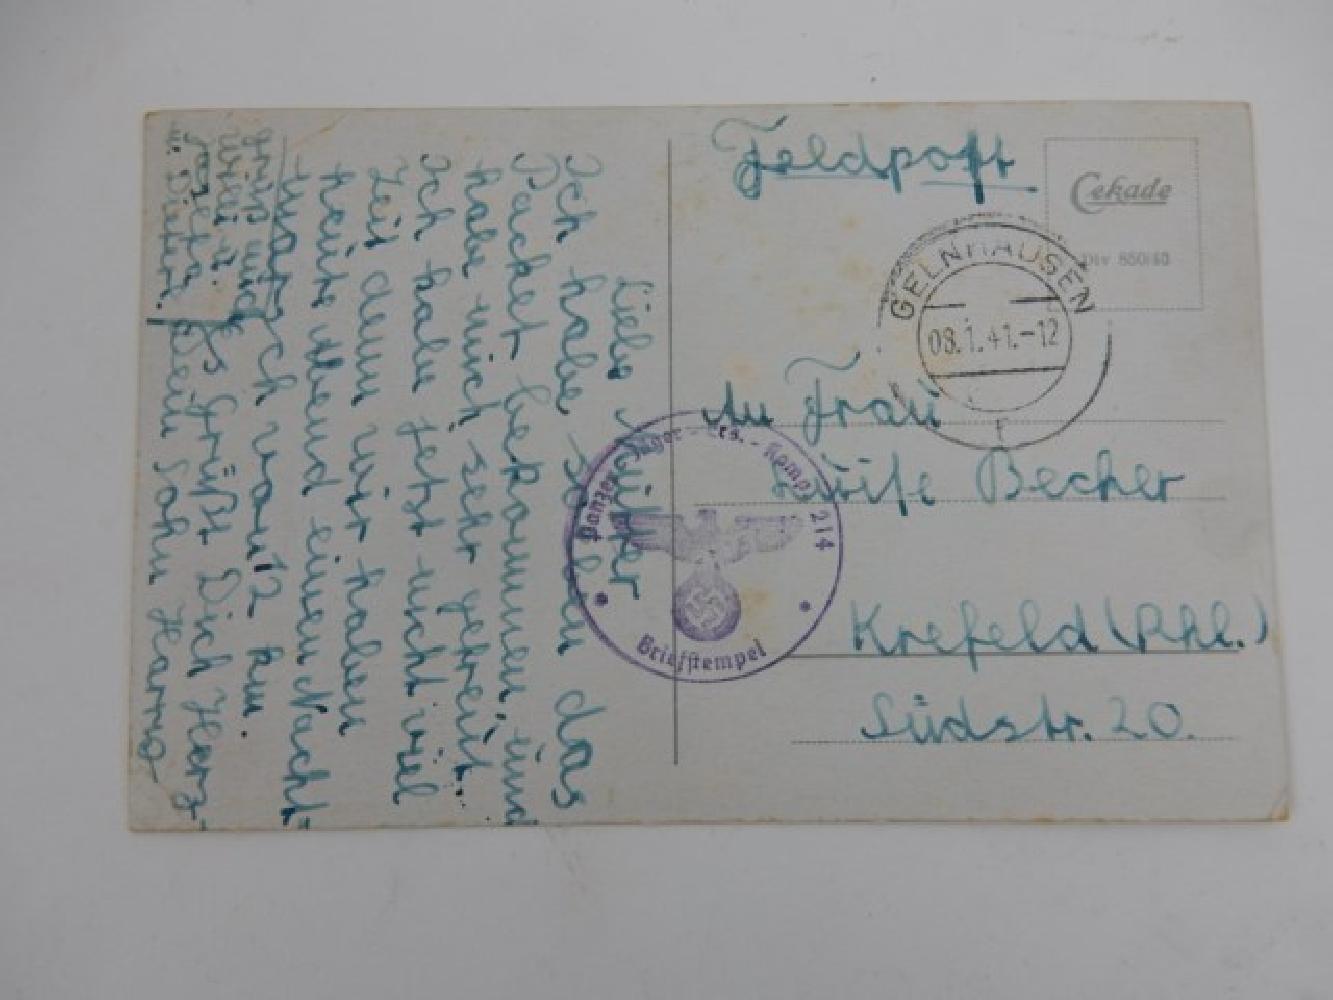 Feldpost
Cekade
Div 850/40
GELNHAUSEN
08.1.41.-12
r
An Frau
Luise Becher
Krefeld (Rhl.)
Südstr. 20.
Panzer-Jäger-Ers.-Komp. 214
Briefstempel
Liebe Mutter
Ich habe soeben das
Packet bekommen, und
habe mich sehr gefreut.
Ich habe jetzt nicht viel
Zeit denn wir haben
heute Abend einen Nacht-
marsch von 12 km.
Es grüßt Dich Herz-
Dein Sohn Harro
grüß mir
u. Dieter.